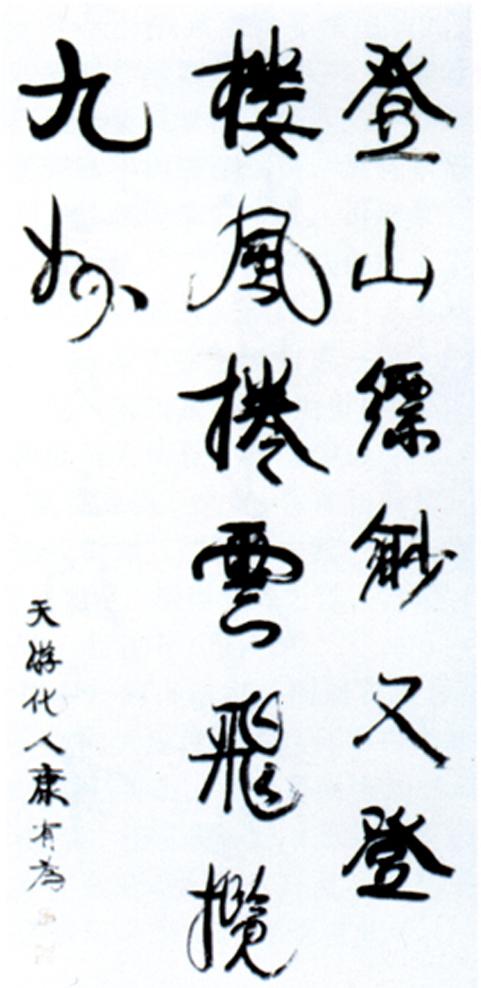 登山缥缈又登
楼風捲雲飛攬
九州
天游化人康有為